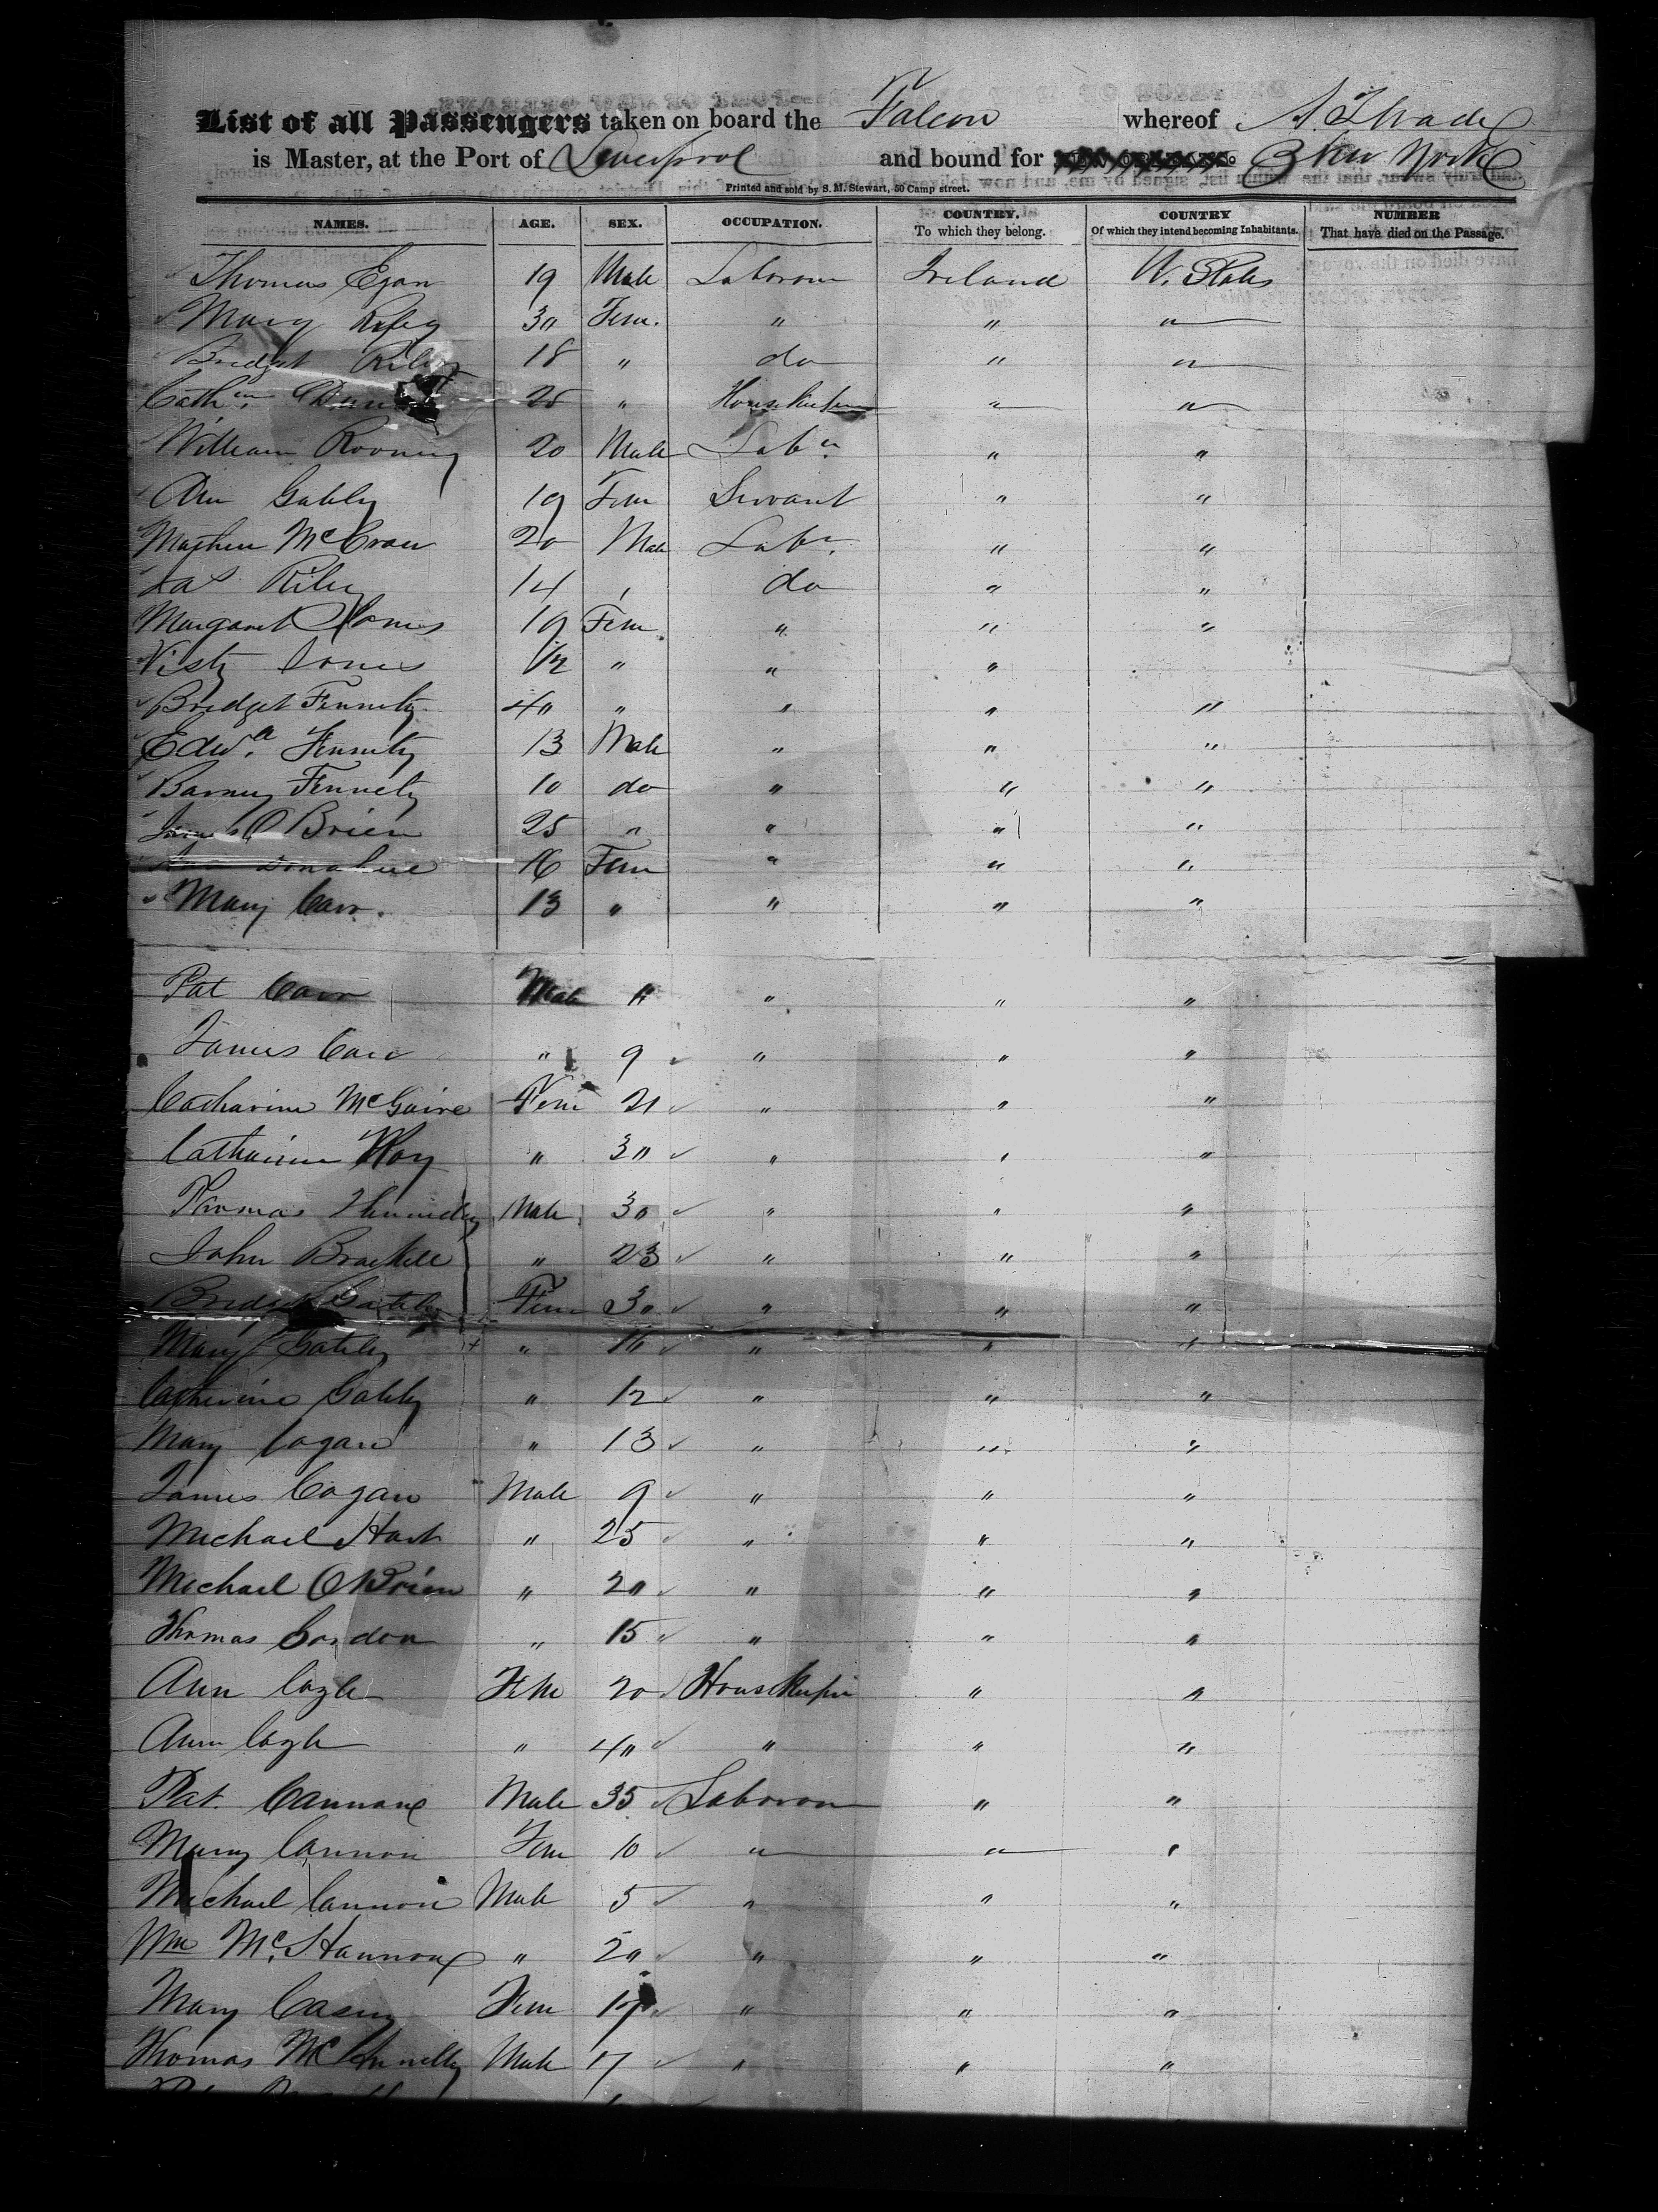 List of all Passengers taken on board the Falcon whereof
is Master, at the Port of Liverpool and bound for New York
Printed and sold by S. M. Stewart, 50 Camp street.
NAMES. AGE. SEX. OCCUPATION. COUNTRY. To which they belong. COUNTRY Of which they intend becoming Inhabitants. NUMBER That have died on the Passage.
Thomas Egan 19 Male Laborour Ireland U. States
Mary Riley 30 Fem. " " "
Bridget Riley 18 " do " "
Cathn. 25 " Housekeeper " "
William Rooney 20 Male Labr. " "
Ann Gately 19 Fem Servant " "
Mathew McCraw 20 Male Labr. " "
Jas Riley 14 , do " "
Margaret Jones 19 Fem. " " "
Jones 1/2 " " "
Bridget Fennety 40 " " " "
Edwd. Fennety 13 Male " " "
Barney Fennety 10 do " " "
James O Brien 25 " " " "
Donahue 16 Fem " " "
Mary Carr. 13 " " " "
Pat Carr Male 11 " " "
James Carr " 9 " " "
Catharine McGuire Fem 21 " " "
Catharine 30 " " "
Thomas Male 30 " " "
John " 23 " " "
Bridget Gately Fem 30 " " "
Mary Gately " " " "
Catherine Gately " 12 " " "
Mary Cogan " 13 " " "
James Cogan Male 9 " " "
Michael Hart " 25 " " "
Michael O'Brien " 20 " " "
Thomas Condon " 15 " " "
Ann Cogle Fem 20 Housekeeper " "
Ann Cogle " 40 " " "
Pat. Cannon Male 35 Laborour " "
Mary Cannon Fem 10 " " "
Michael Cannon Male 5 " " "
Wm Mc. Hannon " 20 " " "
Mary Casey Fem 17 " " "
Thomas Male 17 " " "